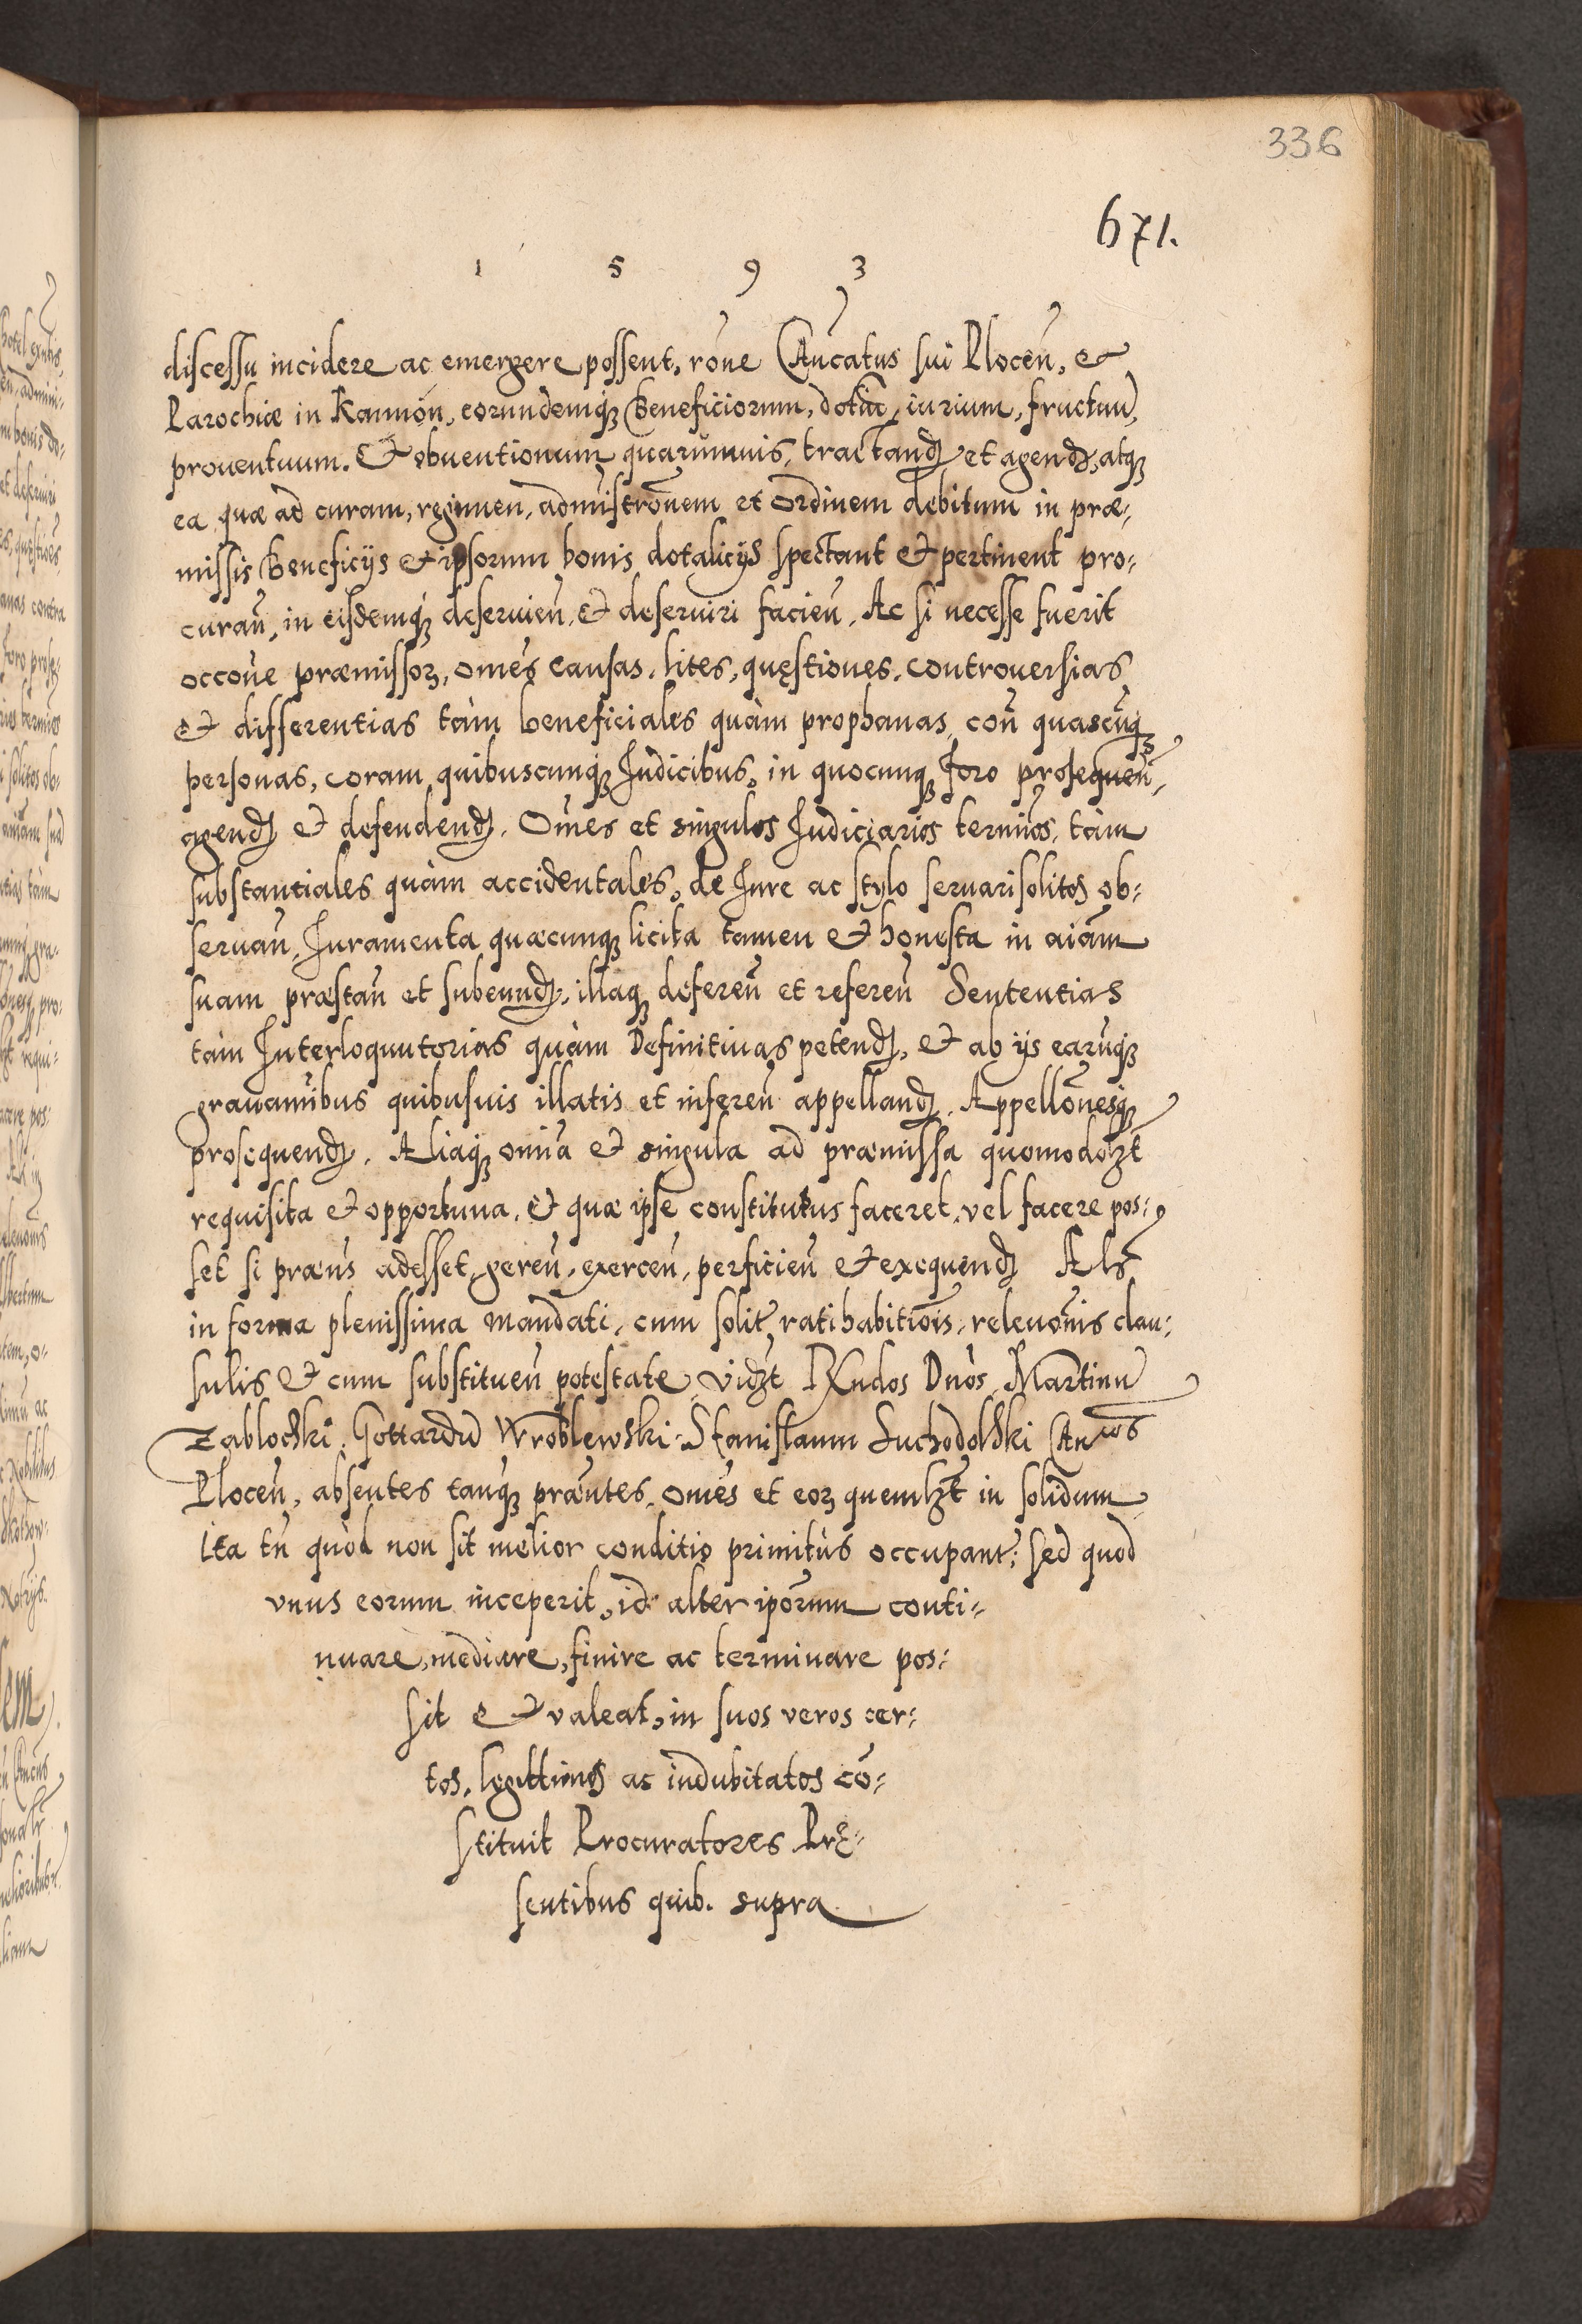 336
671.
1 5 9 3
discessu incidere ac emergere possent, rōne Cān̄catus sui Plocen̄, et
Parochiæ in Kamion, eorundemq₃ Beneficiorum, dotiū, iurium, fructuū,
prouentuum. Et obuentionum quarumuis, tractand̷ et agend̷, atq₃
ea quæ ad curam, regimen, admīstrōnem et ordinem debitum in præ-
missis Beneficijs et ipsorum bonis dotalicijs spectant et pertinent pro-
curan̄, in eisdemq₃ deseruien̄, et deseruiri facien̄, Ac si necesse fuerit
occōne præmissoꝝ, omēs causas, lites, quęstiones, controuersias
et differentias tàm beneficiales quàm prophanas, con̄ quascūq₃
personas, coram quibuscunq₃ Iudicibus, in quocunq₃ foro prosequen̄,
agend̷ et defendend̷. Omēs et singulos Iudiciarios termīos, tàm
substantiales quàm accidentales, de Iure ac stylo seruari solitos ob-
seruan̄, Iuramenta quæcunq₃ licita tamen et honesta in aīam
suam præstan̄ et subeund̷, illaq₃ deferen̄ et referen̄ Sententias
tàm Interloquutorias quàm Definitiuas petend̷, et ab ijs earūq₃
grauamībus quibusuis illatis et inferen̄ appelland̷. Appellōnesq₃
prosequend̷. Aliaq₃ omīa et singula ad præmissa quomodolꝫt
requisita et opportuna, et quæ ipse constitutus faceret, vel facere pos-
set si præn̄s adesset, geren̄, exercen̄, perficien̄ et exequend̷ Als̄
in forma plenissima mandati, cum solit, ratihabitiōis, releuōnis clau-
sulis et cum substituen̄ potestate, vidꝫt RXndos Dnōs Martinū
Zablocski, Gottardū Wroblewski, Stanislaum Suchodolski Cāncos
Plocen̄, absentes tanq₃ præn̄tes, omēs et eoꝝ quemlꝫt in solidum
ita tn̄ quòd non sit melior conditio primitùs occupant: sed quod
vnus eorum inceperit, id alter ipōrum conti-
nuare, mediare, finire ac terminare pos-
sit et valeat, in suos veros cer-
tos, legittimos ac indubitatos cō-
stituit Procuratores Prę-
sentibus quib. supra